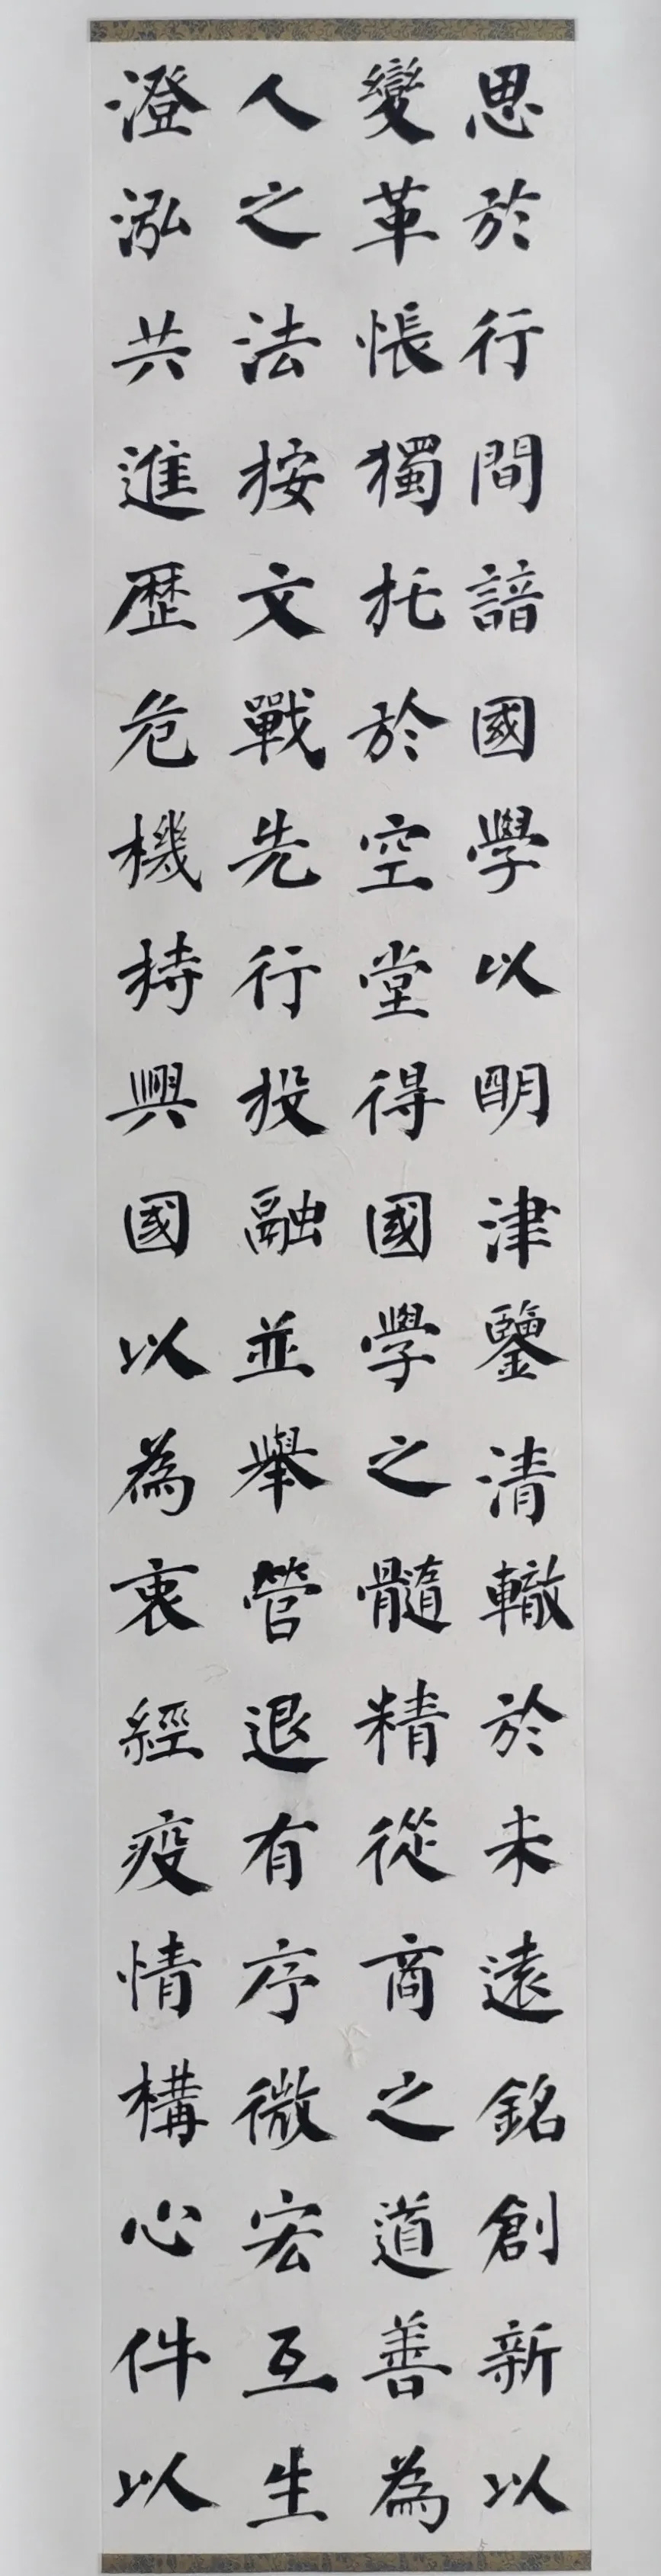 思於行間諳國學以明津鑒清轍於未遠銘創新以
變革悵獨托於空堂得國學之髓精從商之道善為
人之法按文戰先行投融並舉營退有序微宏互生
澄泓共進歷危機持興國以為衷經疫情構心件以